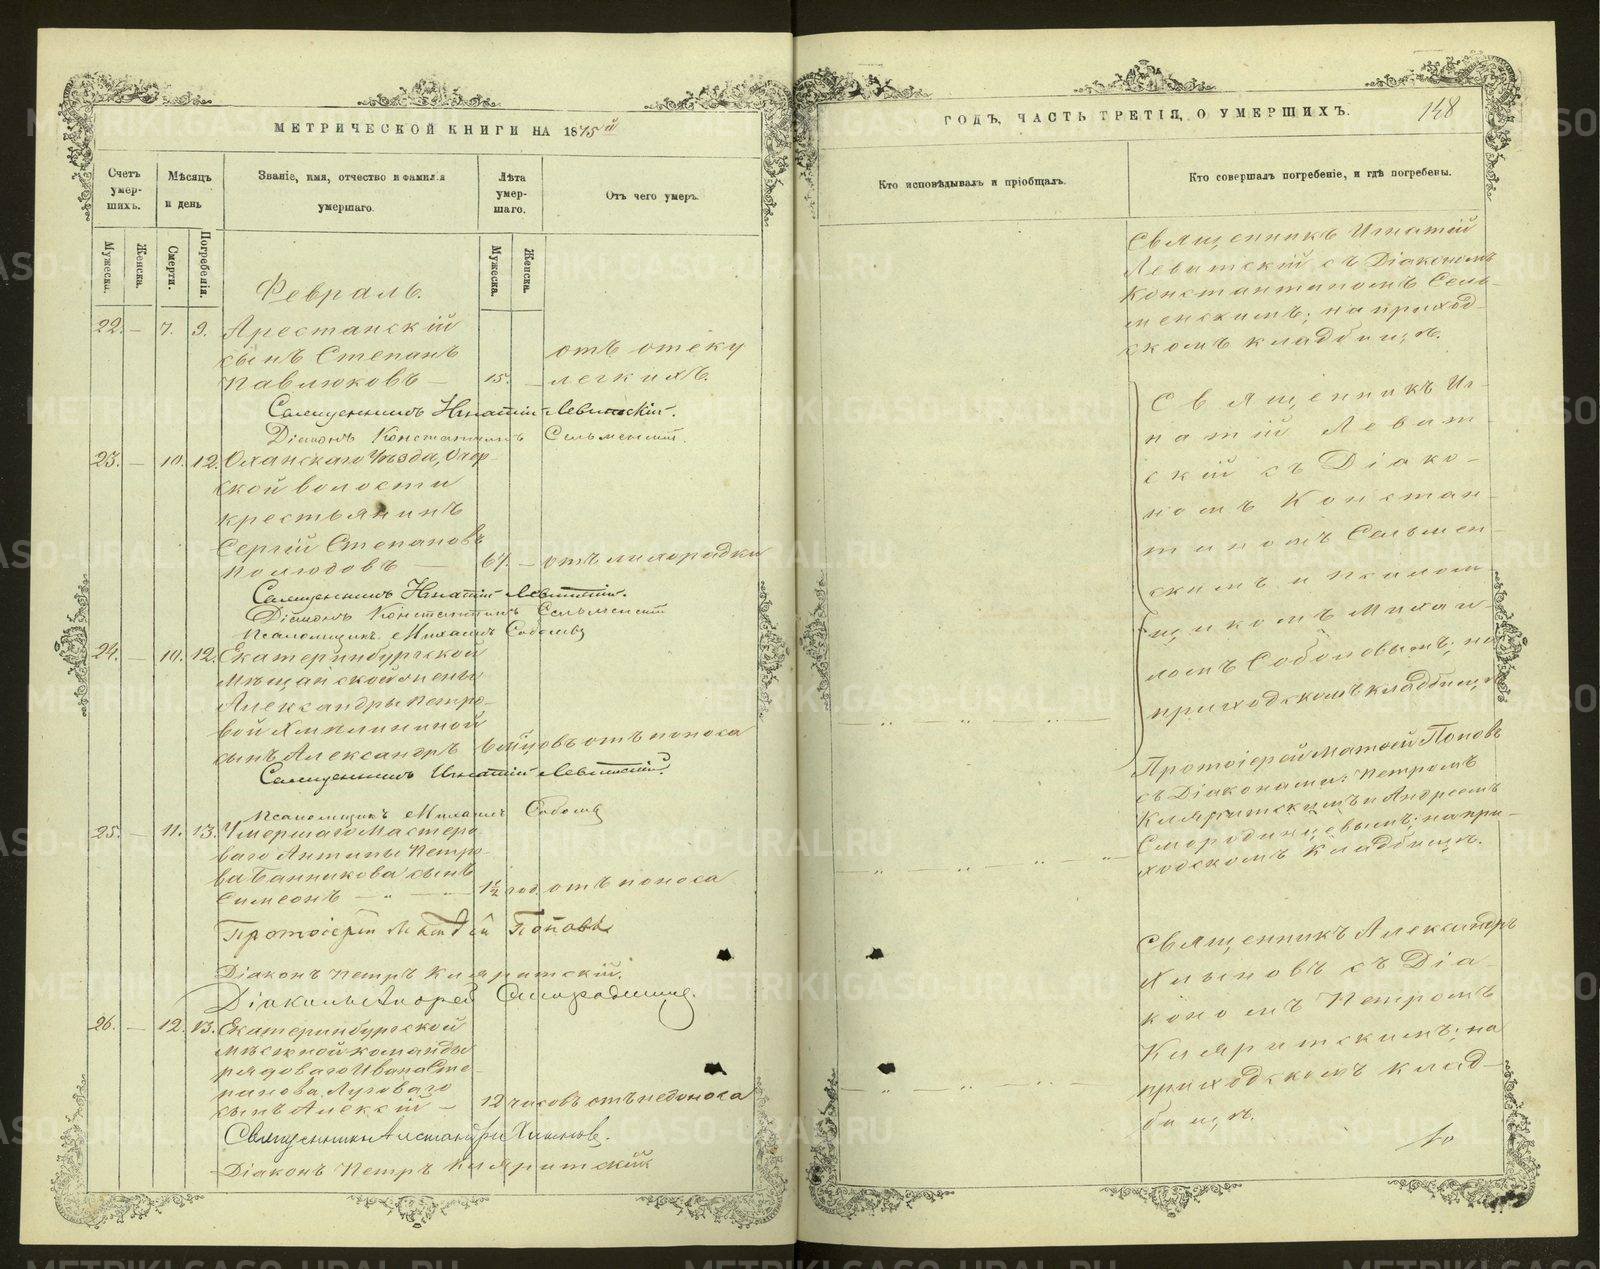 МЕТРИЧЕСКОЙ КНИГИ НА 1875й
Счетъ умер-шихъ.
Мѣсяцъ и день
Званіе, имя, отчество и фамилія умершаго.
Лѣта умер-шаго.
Отъ чего умеръ.
Мужеска.
Женска.
Смерти.
Погребенія.
Мужеска.
Женска.
Февраль.
22. — 7. 9. Арестанскій
сынъ Степанъ отъ отеку
Павлюковъ — 15. — легкихъ.
Священникъ Игнатій Левитскій.
Діаконъ Константинъ Сельменскій.
23. — 10. 12. Оханскаго Уѣзда,
ской волости
крестьянинъ
Сергій Степановъ
Полюдовъ — 67. — отъ лихорадки
Священникъ Игнатій Левитскій.
Діаконъ Константинъ Сельменскій
Псаломщикъ Михаилъ Соболевъ
24. — 10. 12. Екатеринбургской
Мѣщанской жены
Александры Петро-
вой
сынъ Александръ отъ поноса
Священникъ Игнатій Левитскій
Псаломщикъ Михаилъ Соболевъ
25. — 11. 13. Умершаго Мастеро
ваго Антипы Петро-
ва Банникова сынъ
Симеонъ — „ — 1½ год. отъ поноса
Протоіерей Матфій Поповъ
Діаконъ Петръ Кляритскій.
Діаконъ Андрей Смородинцев.
26. — 12. 13. Екатеринбургской
мѣстной команды
рядоваго Ивана Сте-
панова Луговаго
сынъ Алексій — 12 часовъ отъ недоноса
Священникъ Александръ Хлыновъ.
Діаконъ Петръ Кляритскій
ГОДЪ, ЧАСТЬ ТРЕТІЯ, О УМЕРШИХЪ.
148
Кто исповѣдывалъ и пріобщалъ.
Кто совершалъ погребеніе, и гдѣ погребены.
Священникъ Игнатій
Левитскій съ Діакономъ
Константиномъ Сель-
менскимъ; на приход
скомъ кладбищѣ.
Священникъ Иг-
натій Левит-
скій съ Діако-
номъ Констан-
тиномъ Сельмен-
скимъ и Псалом-
щикомъ Михаи-
ломъ Соболевымъ; на
приходскомъ кладбищѣ
Протоіерей Матфей Поповъ
съ Діаконами: Петромъ
Кляритскимъ и Андреемъ
Смородинцевымъ; на при-
ходскомъ кладбищѣ.
Священникъ Александръ
Хлыновъ съ Діа-
кономъ Петромъ
Кляритскимъ; на
приходскомъ клад-
бищѣ.
METRIKI.GASO-URAL.RU